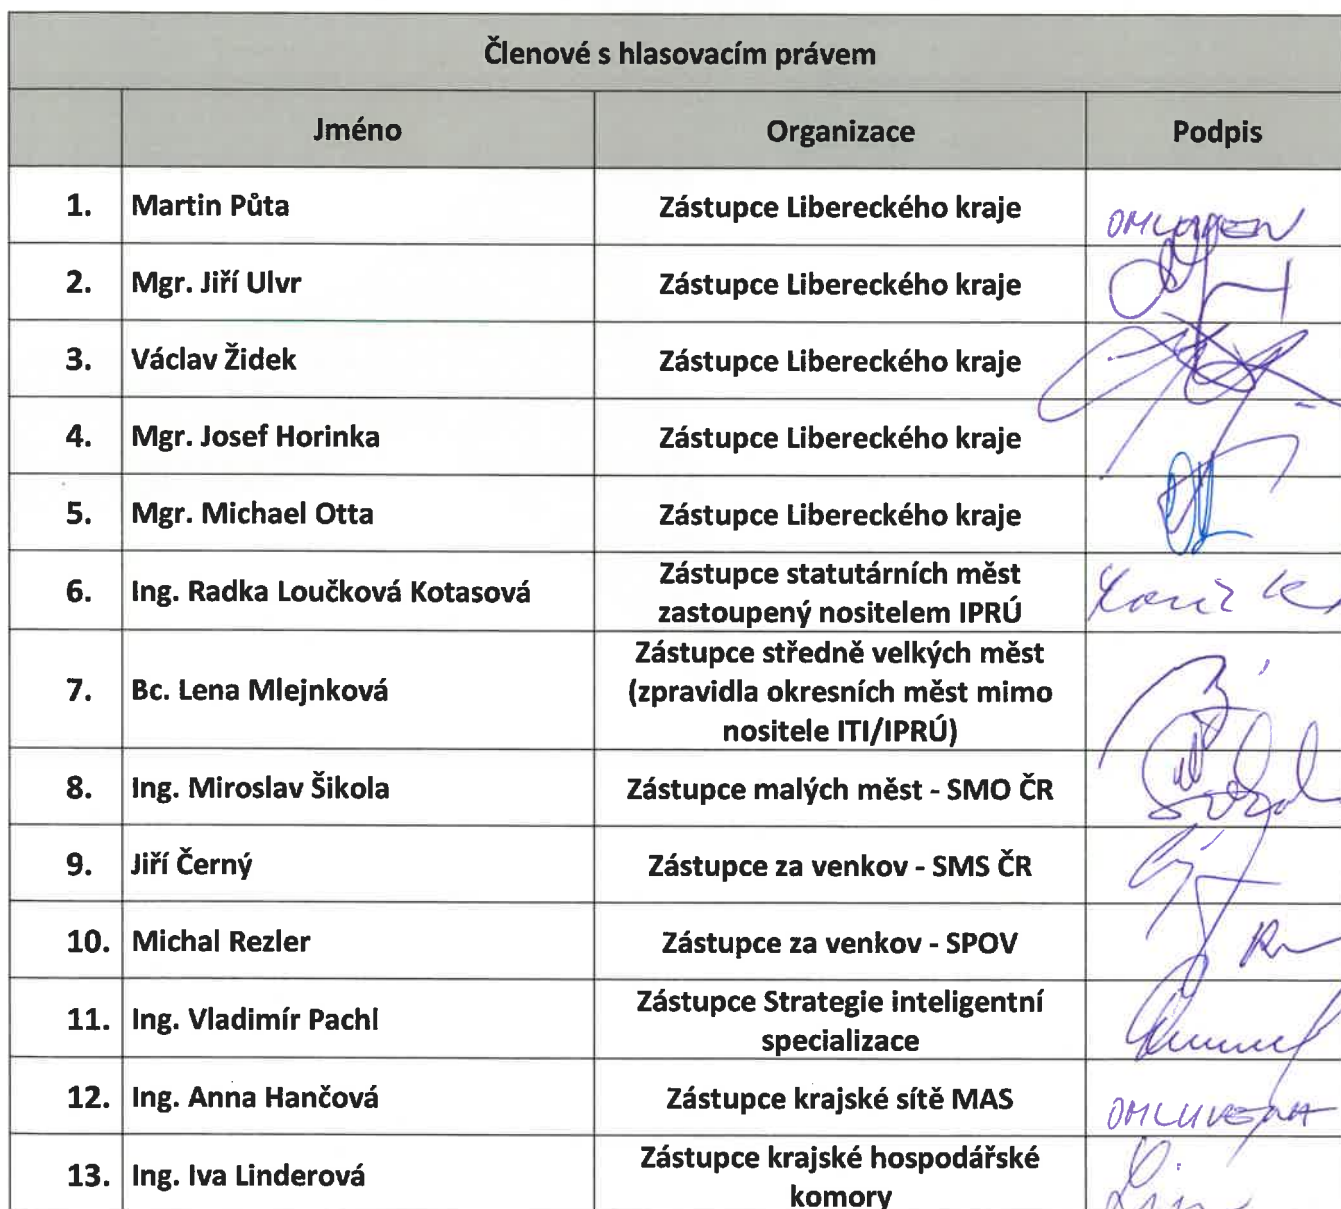 Členové s hlasovacím právem
Jméno Organizace Podpis
1. Martin Půta Zástupce Libereckého kraje OMLUVEN
2. Mgr. Jiří Ulvr Zástupce Libereckého kraje
3. Václav Židek Zástupce Libereckého kraje
4. Mgr. Josef Horinka Zástupce Libereckého kraje
5. Mgr. Michael Otta Zástupce Libereckého kraje
6. Ing. Radka Loučková Kotasová Zástupce statutárních měst
zastoupený nositelem IPRÚ
7. Bc. Lena Mlejnková Zástupce středně velkých měst
(zpravidla okresních měst mimo
nositele ITI/IPRÚ)
8. Ing. Miroslav Šikola Zástupce malých měst - SMO ČR
9. Jiří Černý Zástupce za venkov - SMS ČR
10. Michal Rezler Zástupce za venkov - SPOV
11. Ing. Vladimír Pachl Zástupce Strategie inteligentní
specializace
12. Ing. Anna Hančová Zástupce krajské sítě MAS OMLUVENA
13. Ing. Iva Linderová Zástupce krajské hospodářské
komory